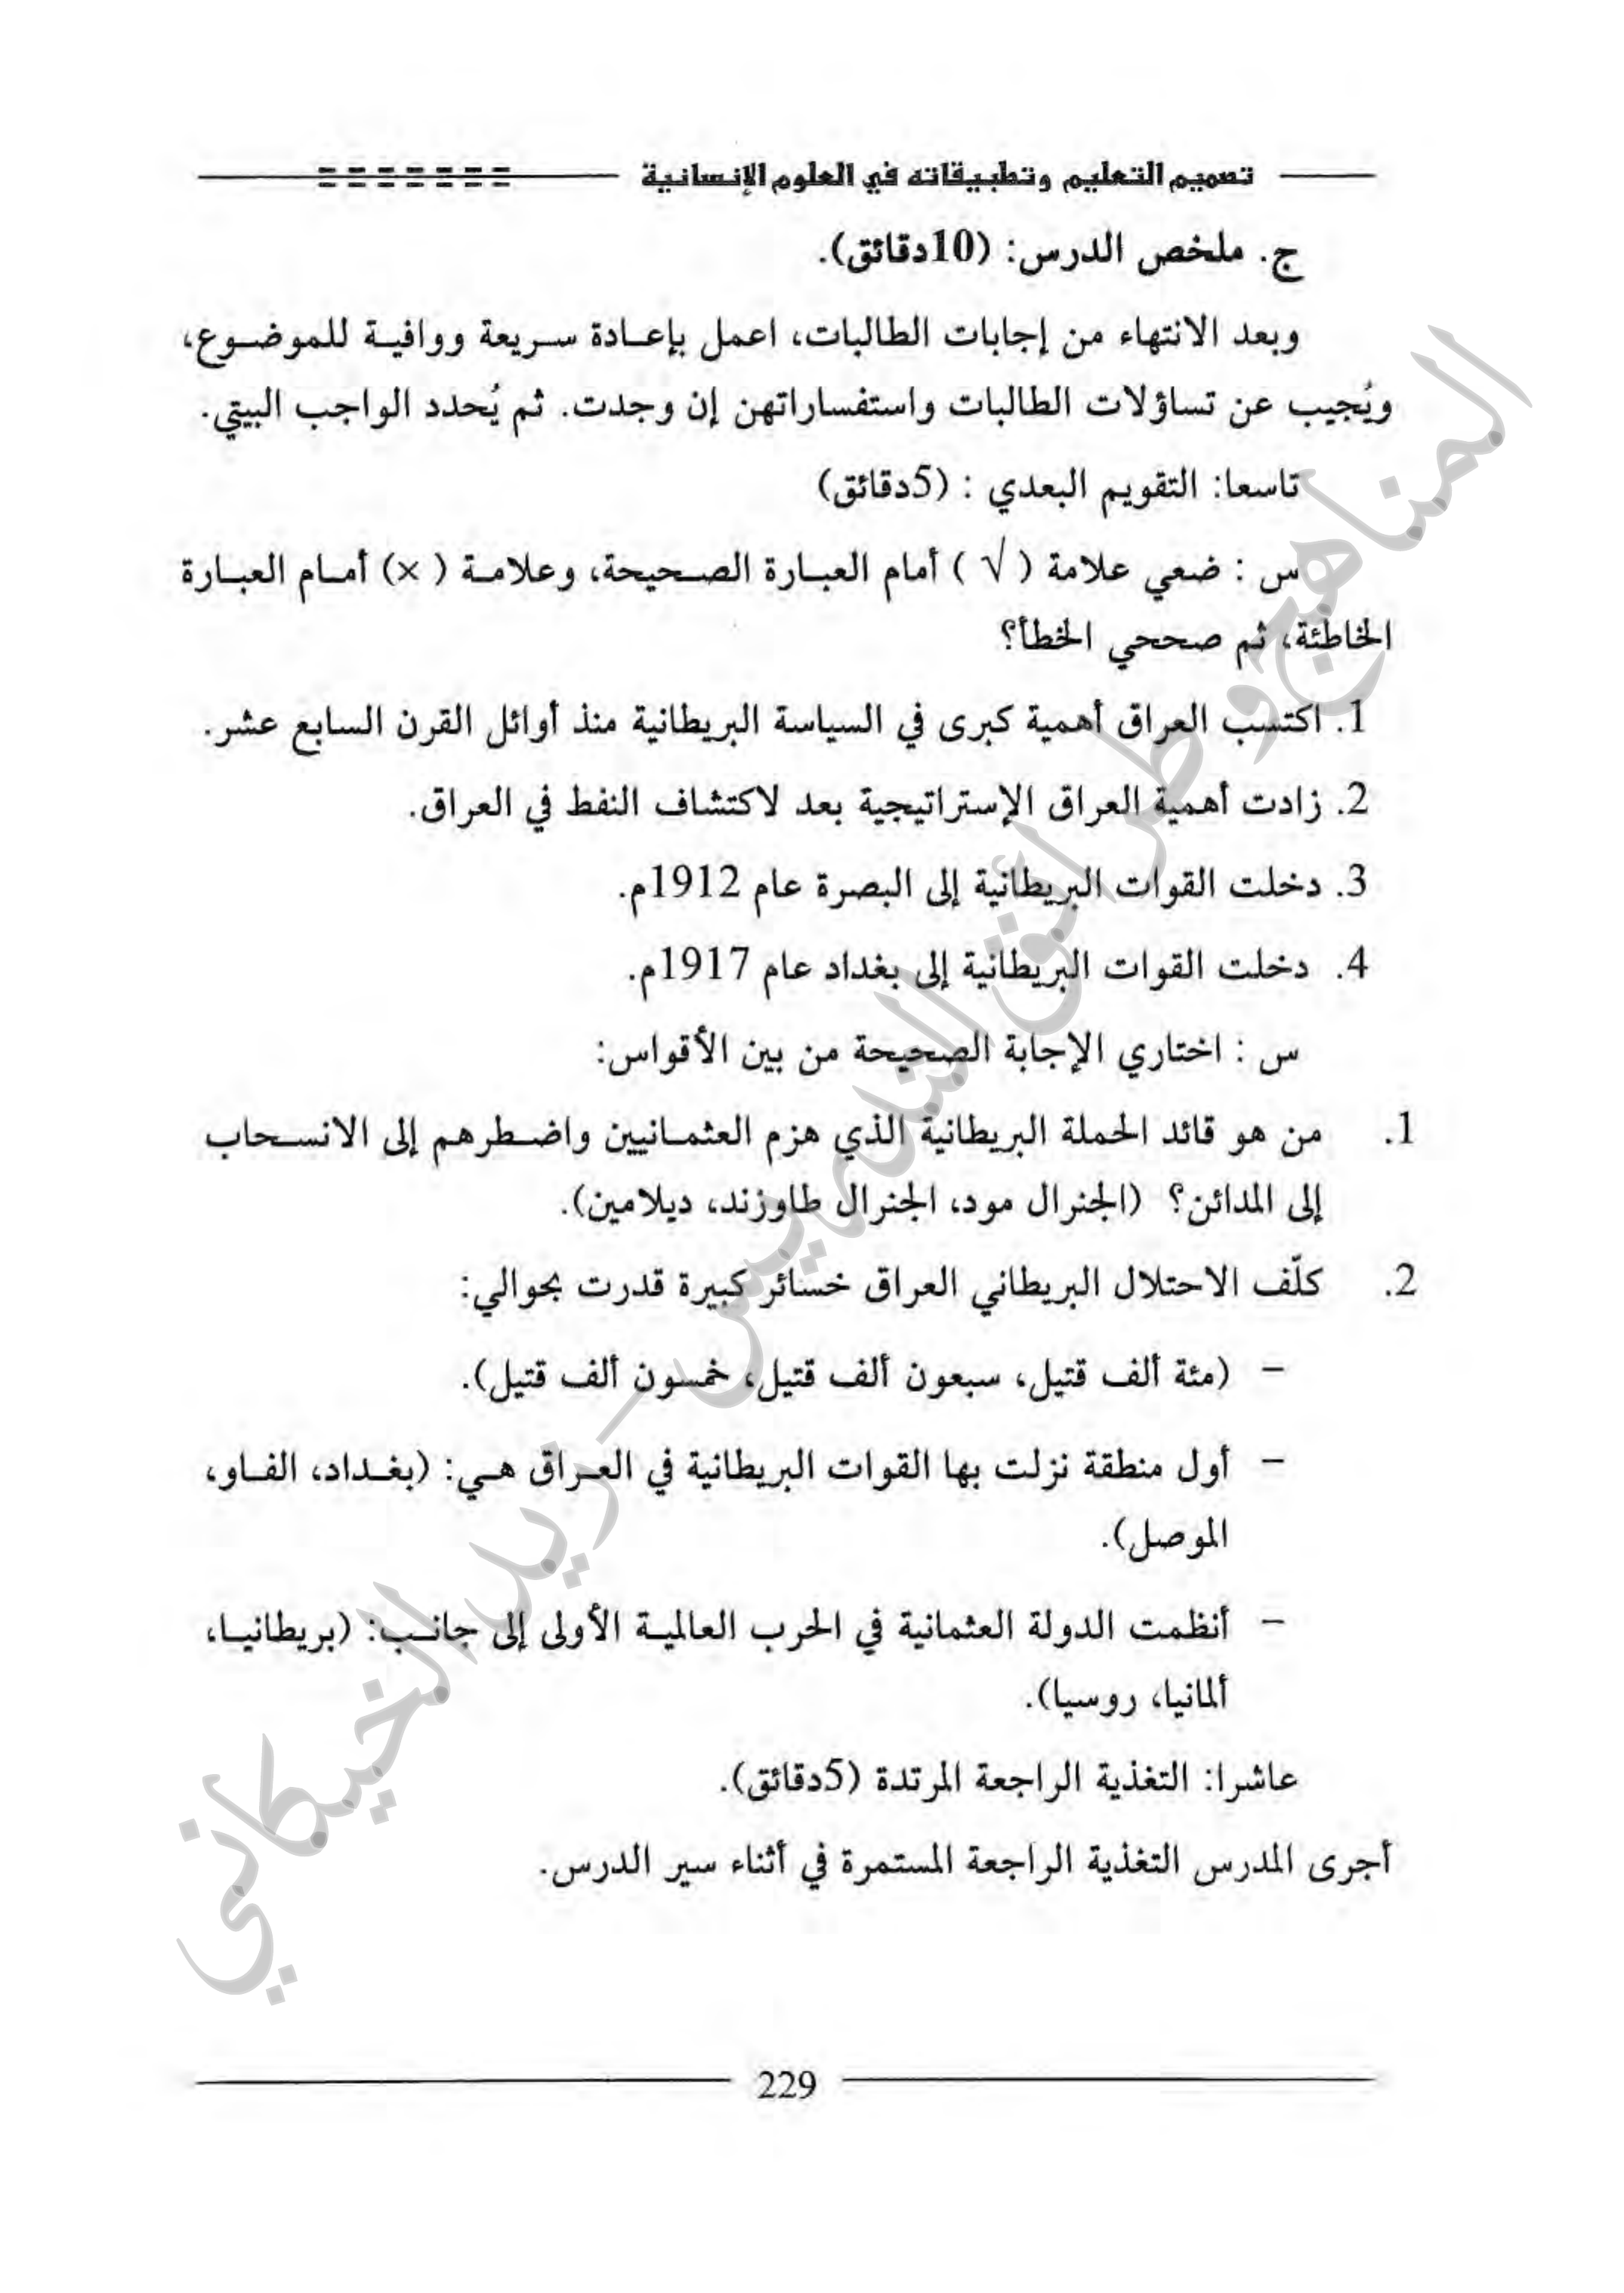 تصميم التعليم وتطبيقاته في العلوم الإنسانية
ج. ملخص الدرس: (10دقائق).
وبعد الانتهاء من إجابات الطالبات، اعمل بإعادة سريعة ووافية للموضوع،
ويُجيب عن تساؤلات الطالبات واستفساراتهن إن وجدت. ثم يُحدد الواجب البيتي.
تاسعا: التقويم البعدي : (5دقائق)
س : ضعي علامة ( √ ) أمام العبارة الصحيحة، وعلامة ( ×) أمام العبارة
الخاطئة، ثم صححي الخطأ؟
1. اكتسب العراق أهمية كبرى في السياسة البريطانية منذ أوائل القرن السابع عشر.
2. زادت أهمية العراق الإستراتيجية بعد لاكتشاف النفط في العراق.
3. دخلت القوات البريطانية إلى البصرة عام 1912م.
4. دخلت القوات البريطانية إلى بغداد عام 1917م.
س : اختاري الإجابة الصحيحة من بين الأقواس:
1. من هو قائد الحملة البريطانية الذي هزم العثمانيين واضطرهم إلى الانسحاب
إلى المدائن؟ (الجنرال مود، الجنرال طاوزند، ديلامين).
2. كلّف الاحتلال البريطاني العراق خسائر كبيرة قدرت بحوالي:
– (مئة ألف قتيل، سبعون ألف قتيل، خمسون ألف قتيل).
– أول منطقة نزلت بها القوات البريطانية في العراق هي: (بغداد، الفاو،
الموصل).
– أنظمت الدولة العثمانية في الحرب العالمية الأولى إلى جانب: (بريطانيا،
ألمانيا، روسيا).
عاشرا: التغذية الراجعة المرتدة (5دقائق).
أجرى المدرس التغذية الراجعة المستمرة في أثناء سير الدرس.
229
المناهج وطرائق التدريس - ريد الخيكاني